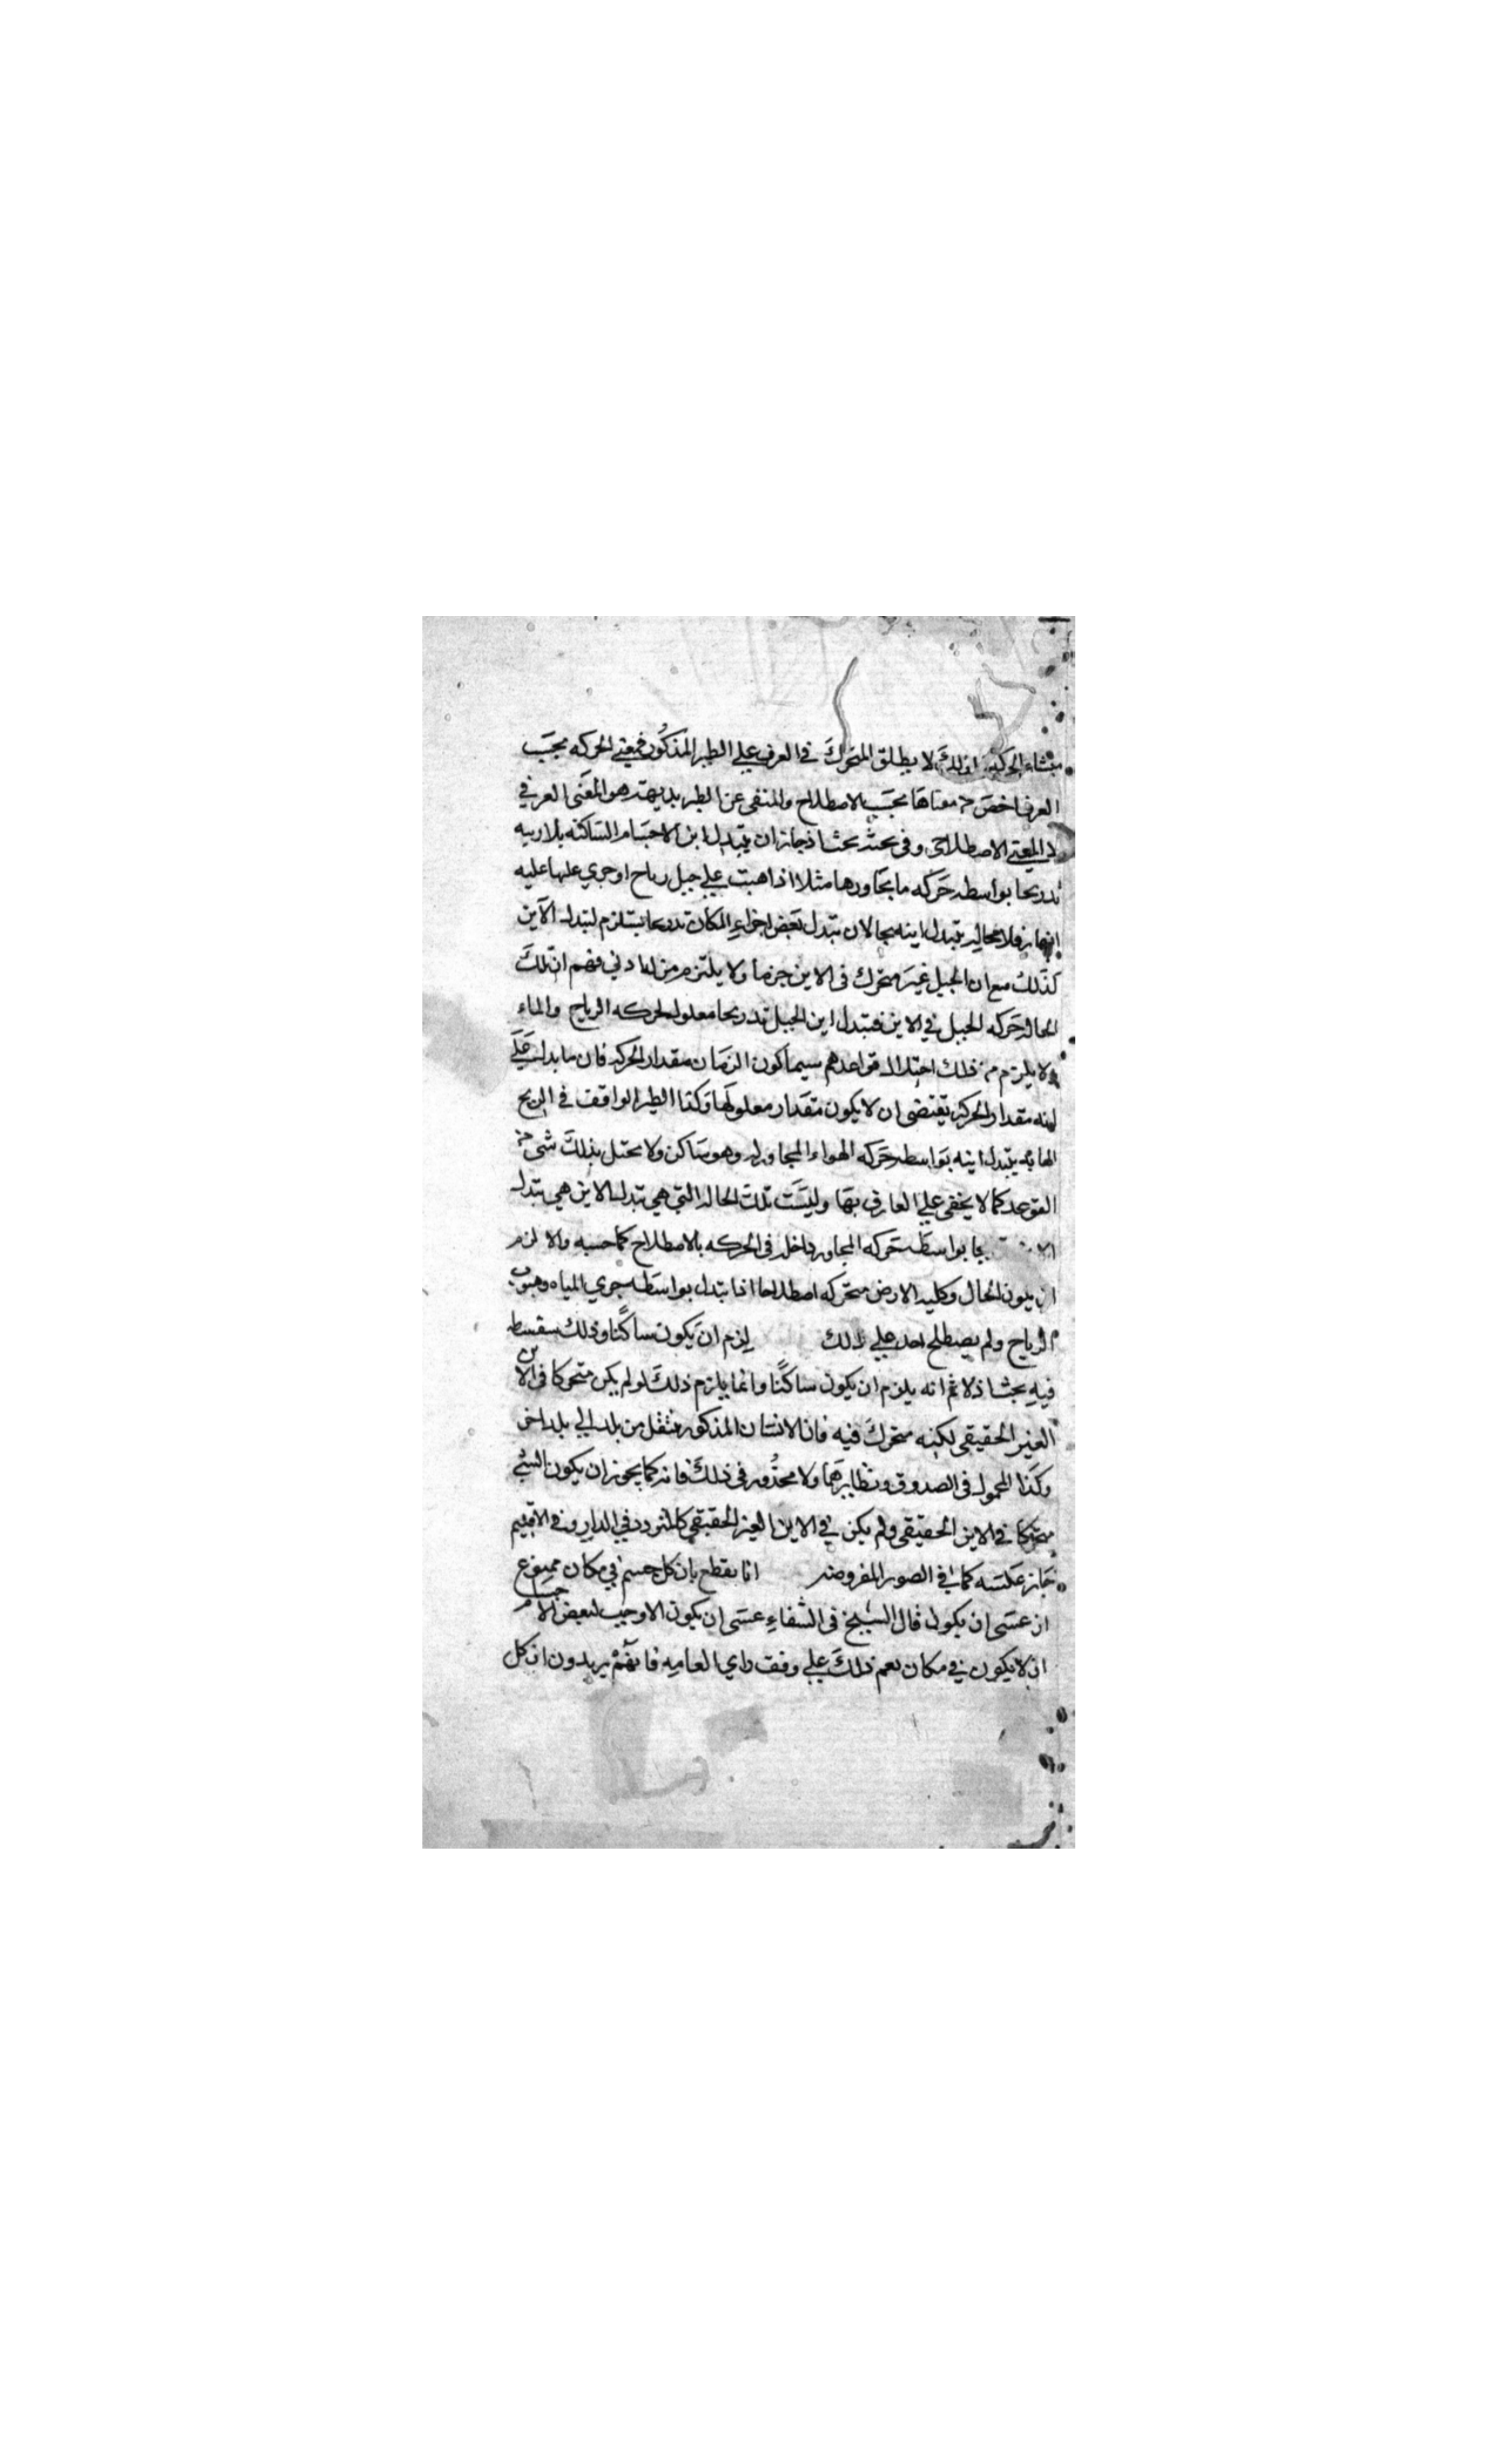 الحركة لا يطلق المتحرك في العرف علي الطير المذكور فمعني الحركه بحسَب
العرف اخص من معناها بحسَب الاصطلاح والمنفي عن الطير بديهة هو المعَنى العرفي
المعنے الاصطلاحي وفى بحثه بحث اذ جاز ان يتبدل اين الاجسَام السَاكنه بلا ريبه
تدريحا بواسطه حَركه ما يجَاورها مثلا اذا هبت علي جبل رياح او جري عليه
انهار فلا محاله يتبدل اينه بحا لان تبدل بعَض اجزاءِ المكان تدريحا يستلزم لتبدل الاَين
كذلك مع ان الجبل غيَر متحرك فى الاين جزما ولا يلتزم من له ادني فهم ان تلك
الحاله حَركه للجبل في الاين فتبدل اين الجبل تدريحا معلول لحركه الرياح والماء
ولا يلزم من ذلك اختلال قواعدهم سيما كون الزمَان مقدار الحركه فان ما يدل علَى
انه مقدار الحركه يقتضى ان لا يكون مقدار معلولَها وَكذا الطير الواقف في الريح
الهابه يتبدل اينه بوَاسطه حَركه الهواء المجاور له وهو سَاكن ولا يختل بذلكَ شى من
القواعد كما لا يخفى علي العارف بهَا وليسَت تلكَ الحاله التي هي تبدل الاين هي تبدل
بواسطَه حَركه المجاور داخله فى الحركه بالاصطلاح كما حسبه والا لزم
ان يكون الحال وكليه الارض متحركه اصطلاحا اذا تبدل بواسَطه جري المياه وهبوب
الرياح ولم يصطلح احد علي ذلك لزم ان يكون ساكنًا وذلك سفسطه
فيه بحث اذ لا ثم انه يلزم ان يكون ساكنًا وانما يلزم ذلكَ لو لم يكن متحركا فى الاين
الغير الحقيقى لكنه متحركَ فيه فان الانسَان المذكور منتقل من بلد الي بلد اخر
وكَذا المحمول فى الصدوق ونظايرهمَا ولا محذُور فى ذلكَ فانه كما يجوز ان يكون الشئ
متحركا في الاين الحقيقى ولم يكن في الاين الغير الحقيقي كالمتردد في الدار وفي الاقليم
جَاز عكسَه كما في الصور المفروضه انا نقطع بان كل جسم في مكان ممنوع
ان عسَى ان يكون قال الشيخ فى الشفاءِ عسَى ان يكون الاوجب لبعض الاجسام
ان لا يكون في مكان نعم ذلكَ علي وفق راي العاميه فانهَمْ يريدون ان كل